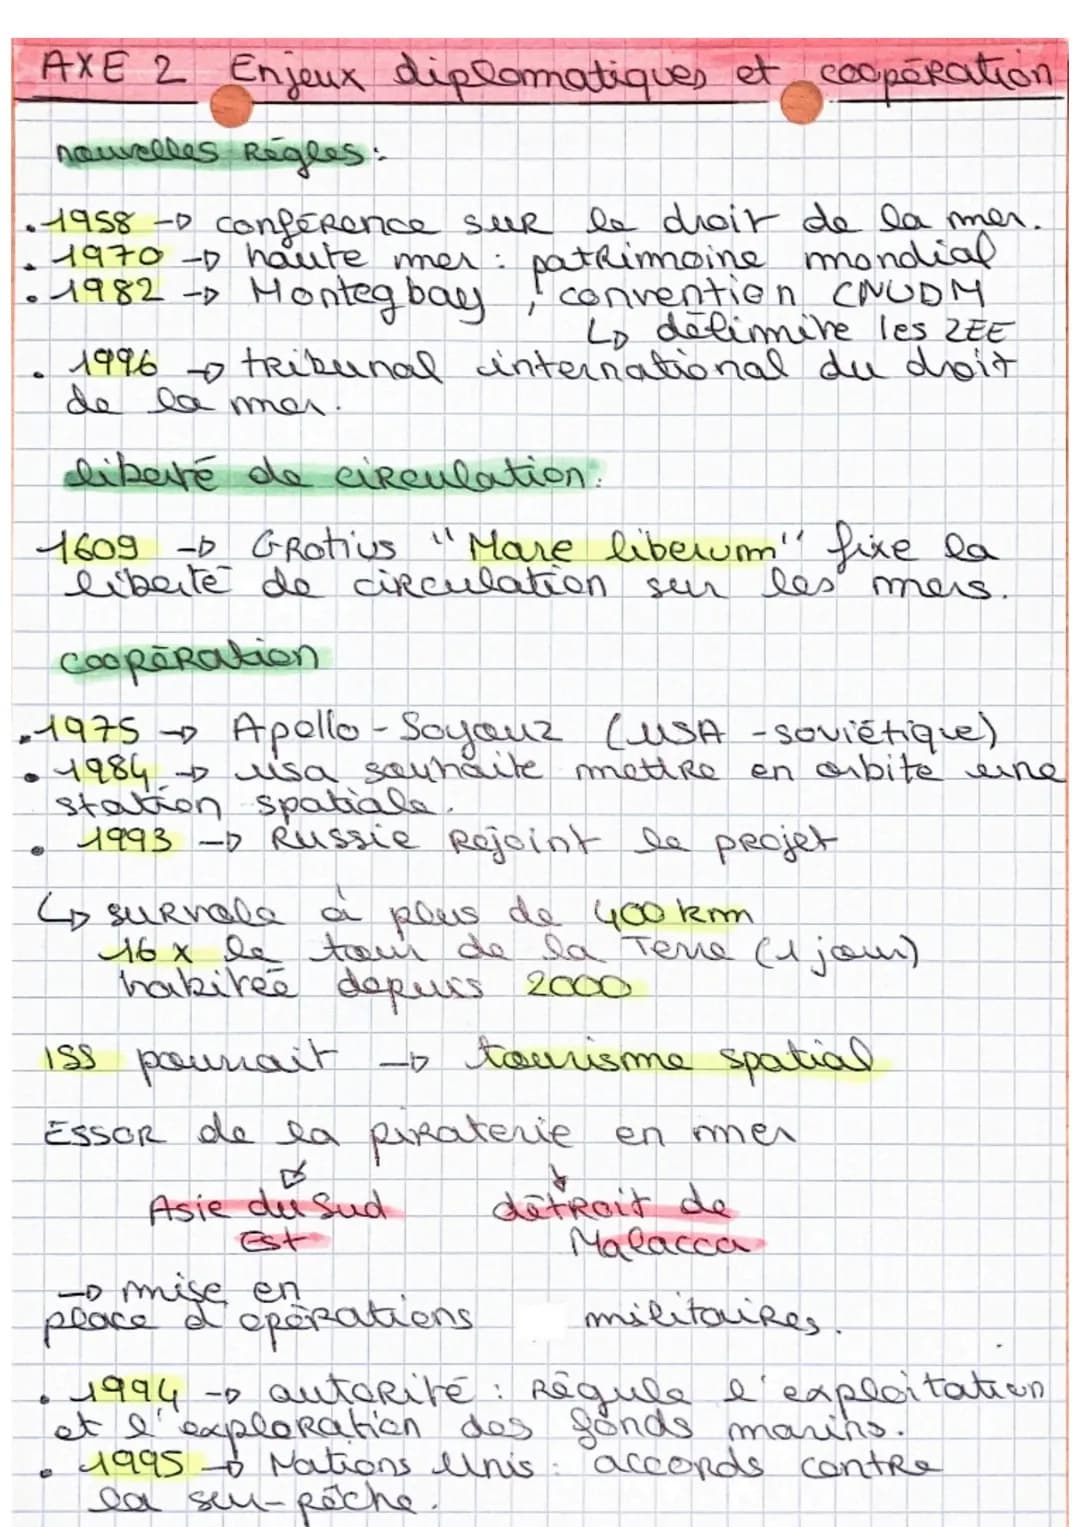 AXE 2 Enjeux diplomatiques et coopération
nouvelles Règles :
. 1958 → conférence sur le droit de la mer.
. 1970 → haute mer : patrimoine mondial
. 1982 → Montegbay , convention CNUDM
↳ délimite les ZEE
. 1996 → tribunal international du droit
de la mer.
liberté de circulation :
1609 → Grotius "Mare liberum" fixe la
liberté de circulation sur les mers.
coopération
. 1975 → Apollo - Soyouz (USA - soviétique)
. 1984 → usa souhaite mettre en orbite une
station spatiale.
. 1993 → Russie Rejoint le projet
↳ survole à plus de 400 km
16 x le tour de la Terre (1 jour)
habitée depuis 2000
ISS pourrait → tourisme spatial
ESSOR de la piraterie en mer
Asie du Sud
Est
détroit de
Malacca
→ mise en
place d'opérations militaires.
. 1994 → autorité : Régule l'exploitation
et l'exploration des fonds marins.
. 1995 → Nations Unis : accords contre
la sur-pêche.